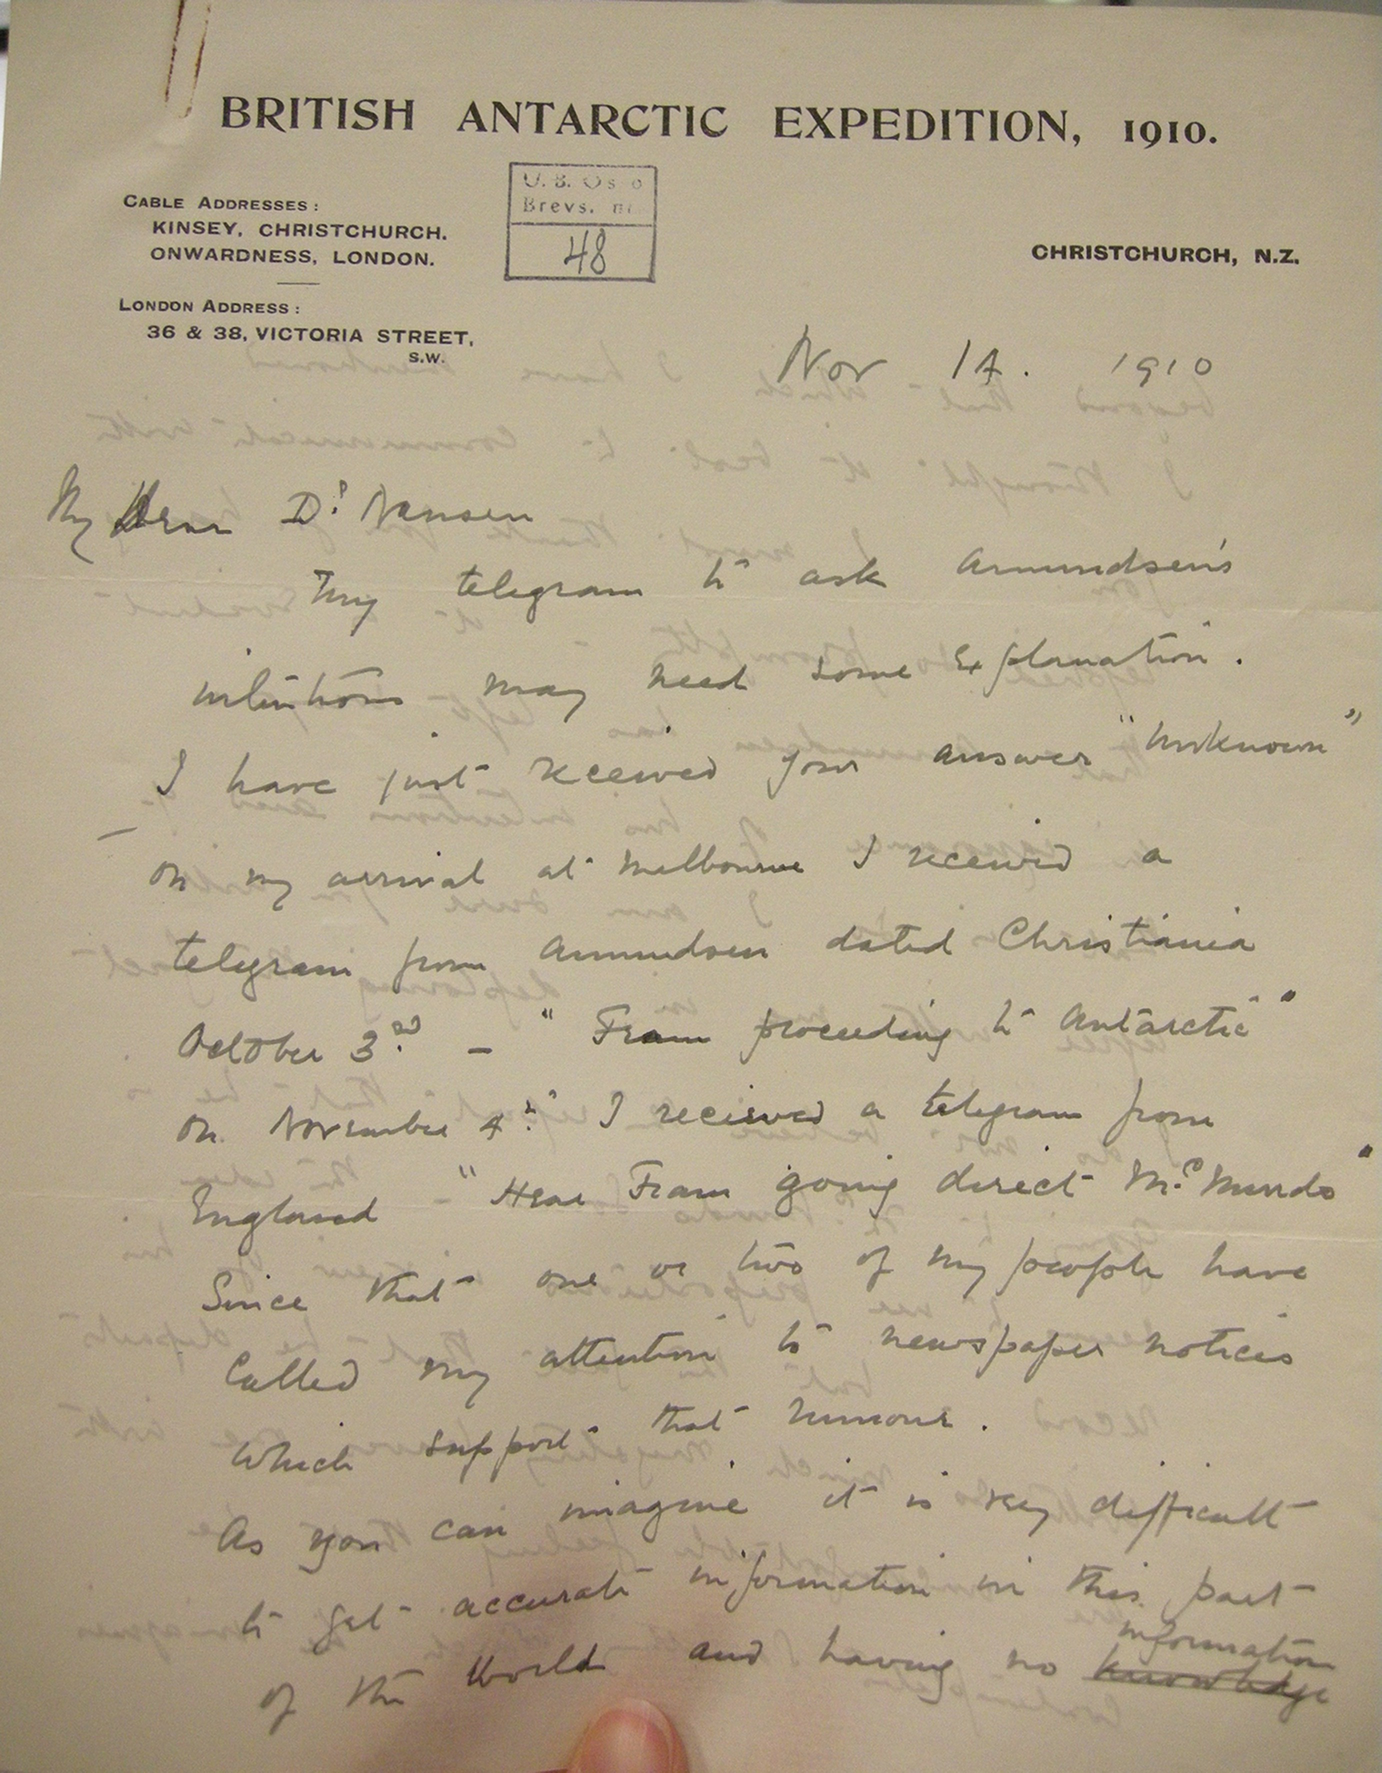 BRITISH ANTARCTIC EXPEDITION, 1910.
CABLE ADDRESSES:
KINSEY, CHRISTCHURCH.
ONWARDNESS, LONDON.
U. B. Oslo
Brevs. nr.
48
CHRISTCHURCH, N.Z.
LONDON ADDRESS:
36 & 38, VICTORIA STREET,
S.W.
Nov 14. 1910
My Dear Dr Nansen
My telegram to ask Amundsen's
intentions may need some explanation.
I have just received your answer "unknown"
— On my arrival at Melbourne I received a
telegram from Amundsen dated Christiania
October 3rd — "Fram proceeding to Antarctic"
On November 4th I received a telegram from
England - "Hear Fram going direct McMurdo"
Since that one or two of my people have
called my attention to newspaper notices
which support that rumour.
As you can imagine it is very difficult
to get accurate information in this part
of the World and having no knowledge
information